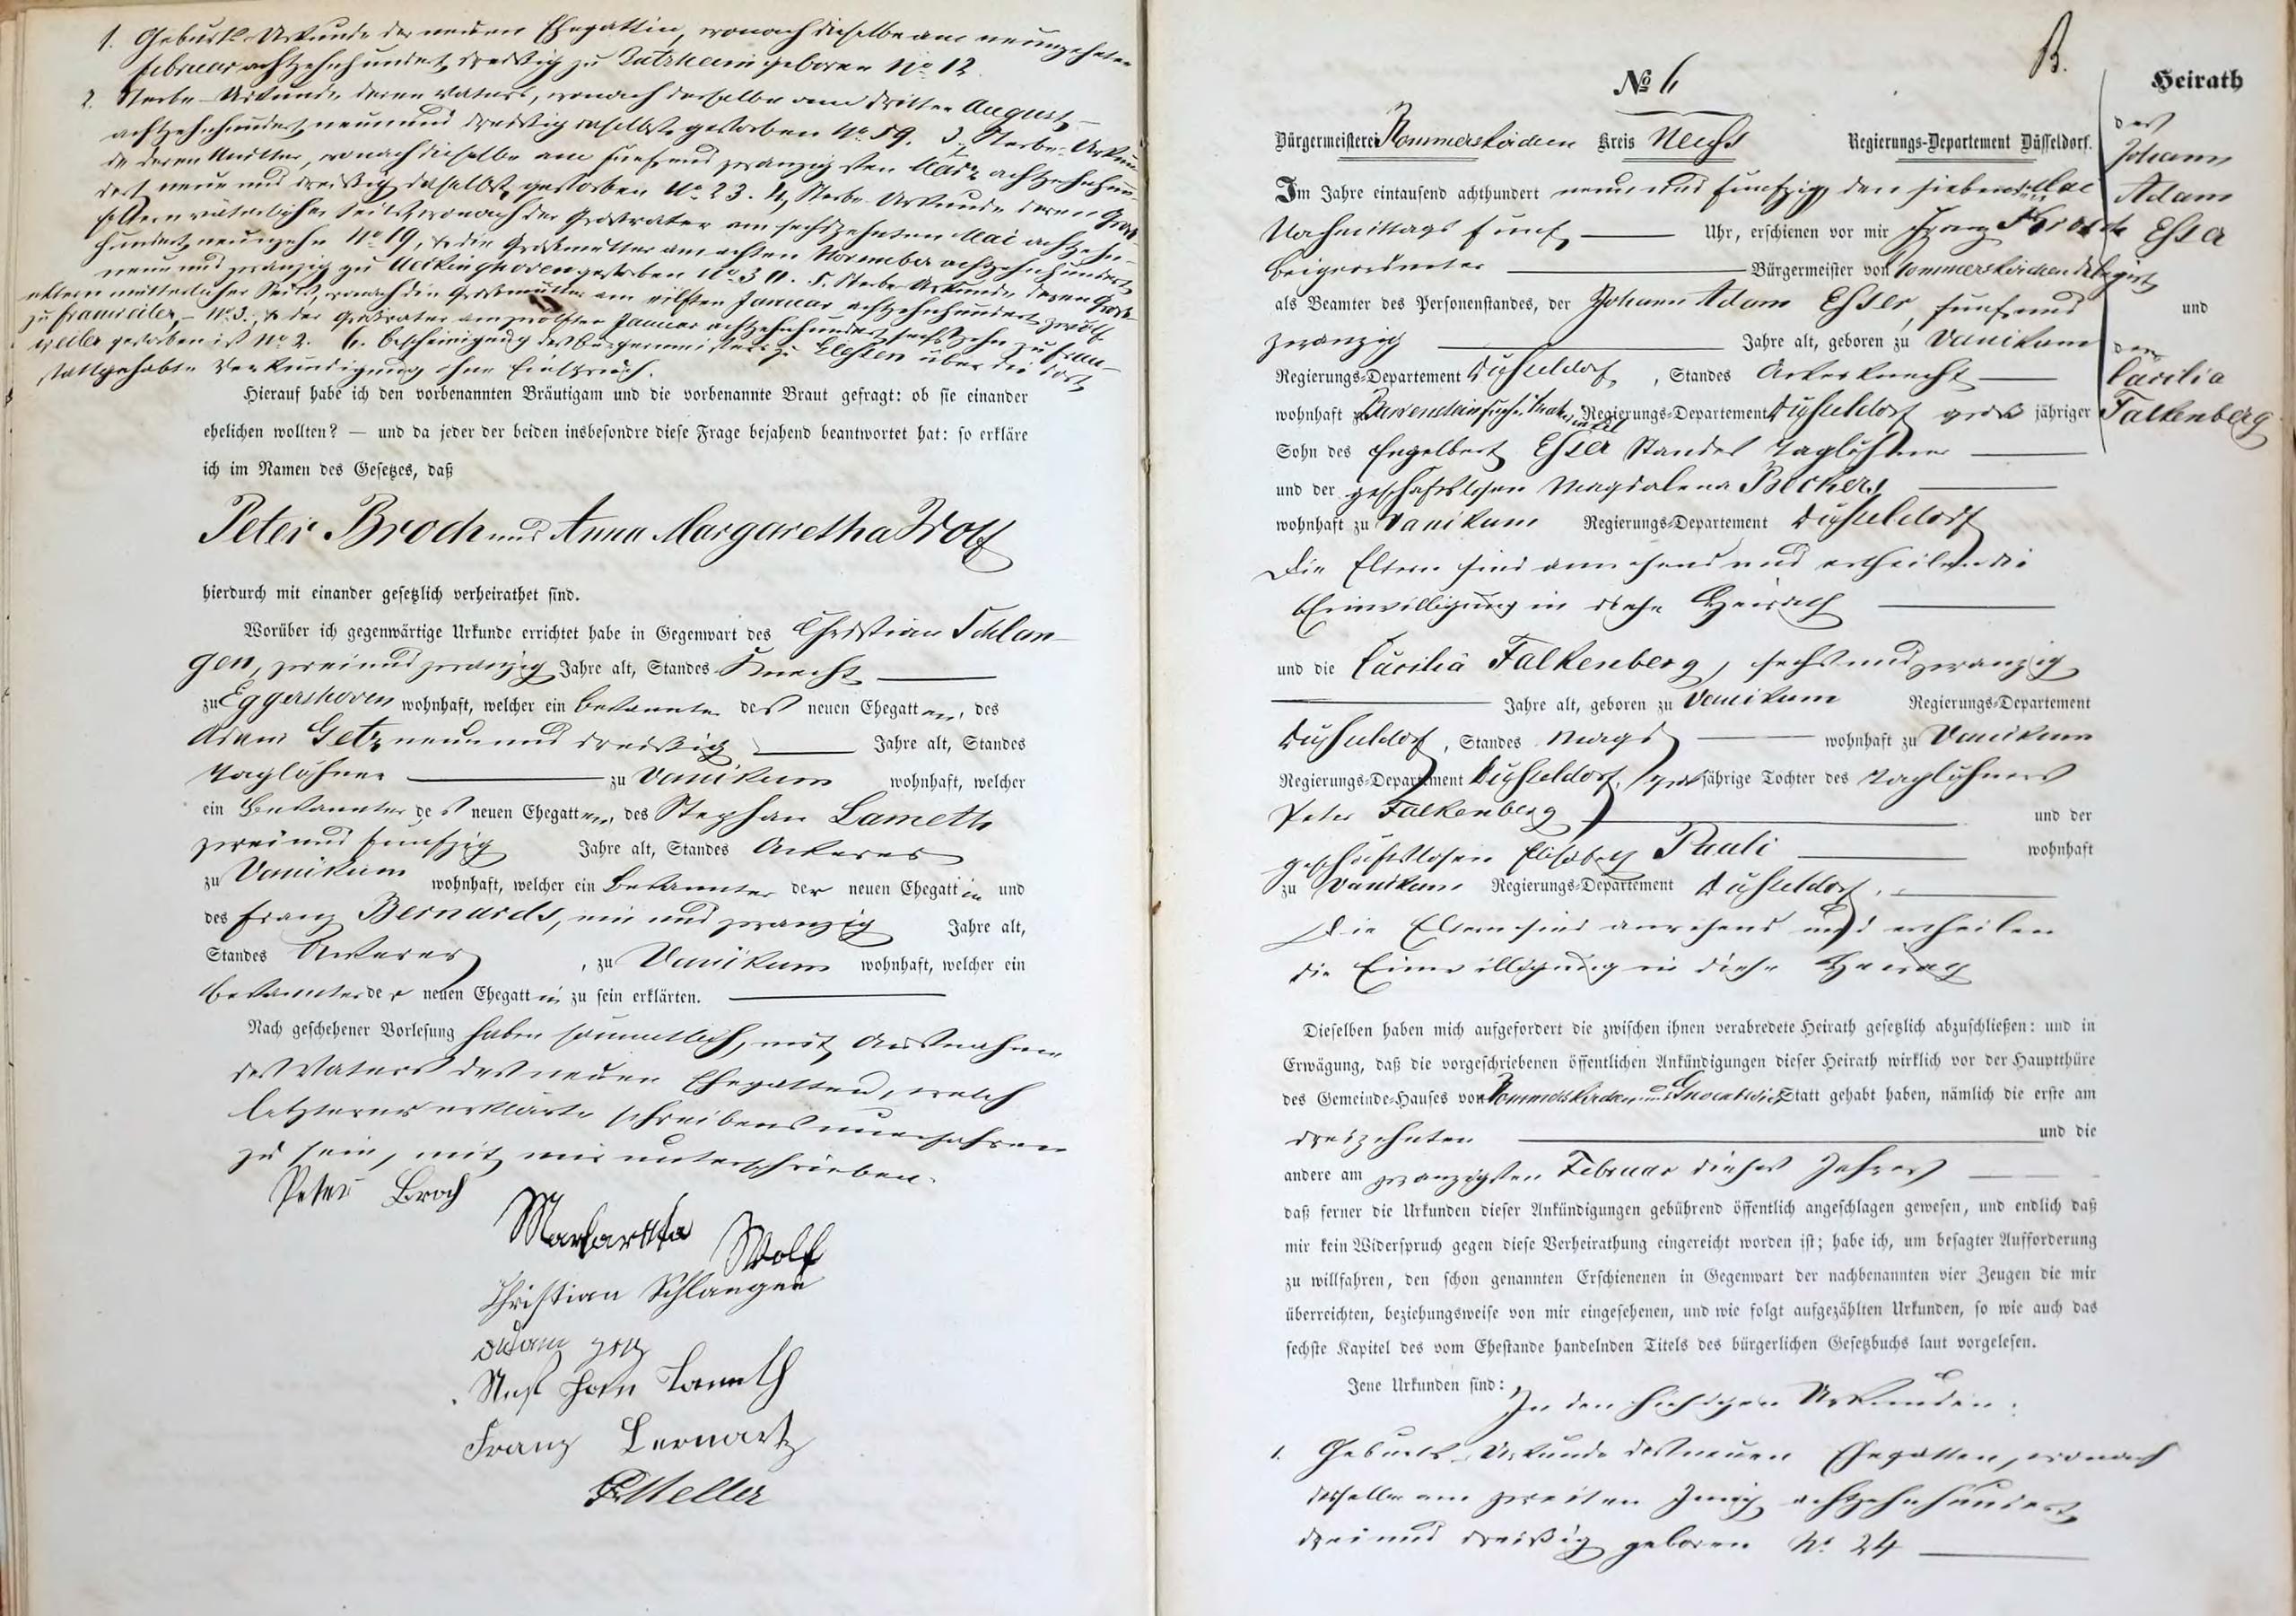 1. Geburts-Urkunde der neuen Ehegattin, wonach dieselbe am neunzehnten
Februar achtzehnhundert dreißig zu geboren No 12.
2. Sterbe-Urkunde deren Vaters, wonach derselbe am dritten August
achtzehnhundert neunund dreißig daselbst gestorben No 59. 3. Sterbe-Urkun
de deren Mutter, wonach dieselbe am fünfund zwanzigsten März achtzehnhun
dert neun und dreißig daselbst gestorben No 23. 4, Sterbe-Urkunde deren Groß-
eltern väterlicher Seits, wonach der Großvater am sechszehnten Mai achtzehn-
hundert neunzehn No 19, & die Großmutter am achten November achtzehnhundert
neun und zwanzig zu gestorben No 5. Sterbe-Urkunde deren Groß-
eltern mütterlicher Seits, wonach die Großmutter am eilften Januar achtzehnhundert zwölf
zu Frauweiler, No 3., & der Großvater am zwölften Januar achtzehnhundert sechszehn zu Frau-
weiler gestorben ist No 2. 6. Bescheinigung des Bürgermeisters zu Elsen über die dort
stattgehabte Verkündigung ohne Einspruch.
Hierauf habe ich den vorbenannten Bräutigam und die vorbenannte Braut gefragt: ob sie einander
ehelichen wollten? — und da jeder der beiden insbesondre diese Frage bejahend beantwortet hat: so erkläre
ich im Namen des Gesetzes, daß
Peter Broch und Anna Margaretha Wolf
hierdurch mit einander gesetzlich verheirathet sind.
Worüber ich gegenwärtige Urkunde errichtet habe in Gegenwart des Christian Schlan-
gen, zweiund zwanzig Jahre alt, Standes Knecht
zu Eggershoven wohnhaft, welcher ein Bekannter des neuen Ehegatten, des
Adam Getz neunund dreißig Jahre alt, Standes
Taglöhner zu Vanikum wohnhaft, welcher
ein Bekannter des neuen Ehegatten, des Stephan Lameth
zweiund fünfzig Jahre alt, Standes Ackerer
zu Vanikum wohnhaft, welcher ein Bekannter der neuen Ehegattin und
des Franz Bernards, ein und zwanzig Jahre alt,
Standes Ackerer, zu Vanikum wohnhaft, welcher ein
Bekannter der neuen Ehegattin zu sein erklärten.
Nach geschehener Vorlesung haben sämmtlich, mit Ausnahme
des Vaters des neuen Ehegatten, welch
letzterer erklärte schreibens unerfahren
zu sein, mit mir unterschrieben.
Peter Broch
Margaretha Wolf
Christian Schlangen
Adam Getz
Stephan Lameth
Franz Bernartz
B.
No 6
Heirath
Bürgermeisterei Rommerskirchen Kreis Neuss Regierungs-Departement Düsseldorf.
des
Johann
Adam
Esser
und
der
Cäcilia
Falkenberg
Im Jahre eintausend achthundert neun und fünfzig den siebenten Mai
Nachmittags fünf Uhr, erschienen vor mir Franz
Beigeordneter Bürgermeister von Rommerskirchen delegirt
als Beamter des Personenstandes, der Johann Adam Esser, fünfund
zwanzig Jahre alt, geboren zu Vanikum
Regierungs-Departement Düsseldorf, Standes Ackerknecht
wohnhaft zu Regierungs-Departement Düsseldorf groß jähriger
Sohn des Engelbert Esser Standes Taglöhner
und der geschäftslosen Magdalena Beckers
wohnhaft zu Vanikum Regierungs-Departement Düsseldorf
Die Eltern sind anwesend und ertheilen die
Einwilligung in diese Heirath
und die Cäcilia Falkenberg, sechsundzwanzig
Jahre alt, geboren zu Vanikum Regierungs-Departement
Düsseldorf, Standes Magd wohnhaft zu Vanikum
Regierungs-Departement Düsseldorf, großjährige Tochter des Taglöhners
Peter Falkenberg und der
geschäftslosen Elisabeth Pauli wohnhaft
zu Vanikum Regierungs-Departement Düsseldorf.
Die Eltern sind anwesend und ertheilen
die Einwilligung in diese Heirath
Dieselben haben mich aufgefordert die zwischen ihnen verabredete Heirath gesetzlich abzuschließen: und in
Erwägung, daß die vorgeschriebenen öffentlichen Ankündigungen dieser Heirath wirklich vor der Hauptthüre
des Gemeinde-Hauses von Rommerskirchen und Statt gehabt haben, nämlich die erste am
dreizehnten und die
andere am zwanzigsten Februar dieses Jahres
daß ferner die Urkunden dieser Ankündigungen gebührend öffentlich angeschlagen gewesen, und endlich daß
mir kein Widerspruch gegen diese Verheirathung eingereicht worden ist; habe ich, um besagter Aufforderung
zu willfahren, den schon genannten Erschienenen in Gegenwart der nachbenannten vier Zeugen die mir
überreichten, beziehungsweise von mir eingesehenen, und wie folgt aufgezählten Urkunden, so wie auch das
sechste Kapitel des vom Ehestande handelnden Titels des bürgerlichen Gesetzbuchs laut vorgelesen.
Jene Urkunden sind: In den hiesigen Urkunden:
1. Geburts-Urkunde des neuen Ehegatten, wonach
derselbe am zweiten Juny achtzehnhundert
dreiund dreißig geboren No 24